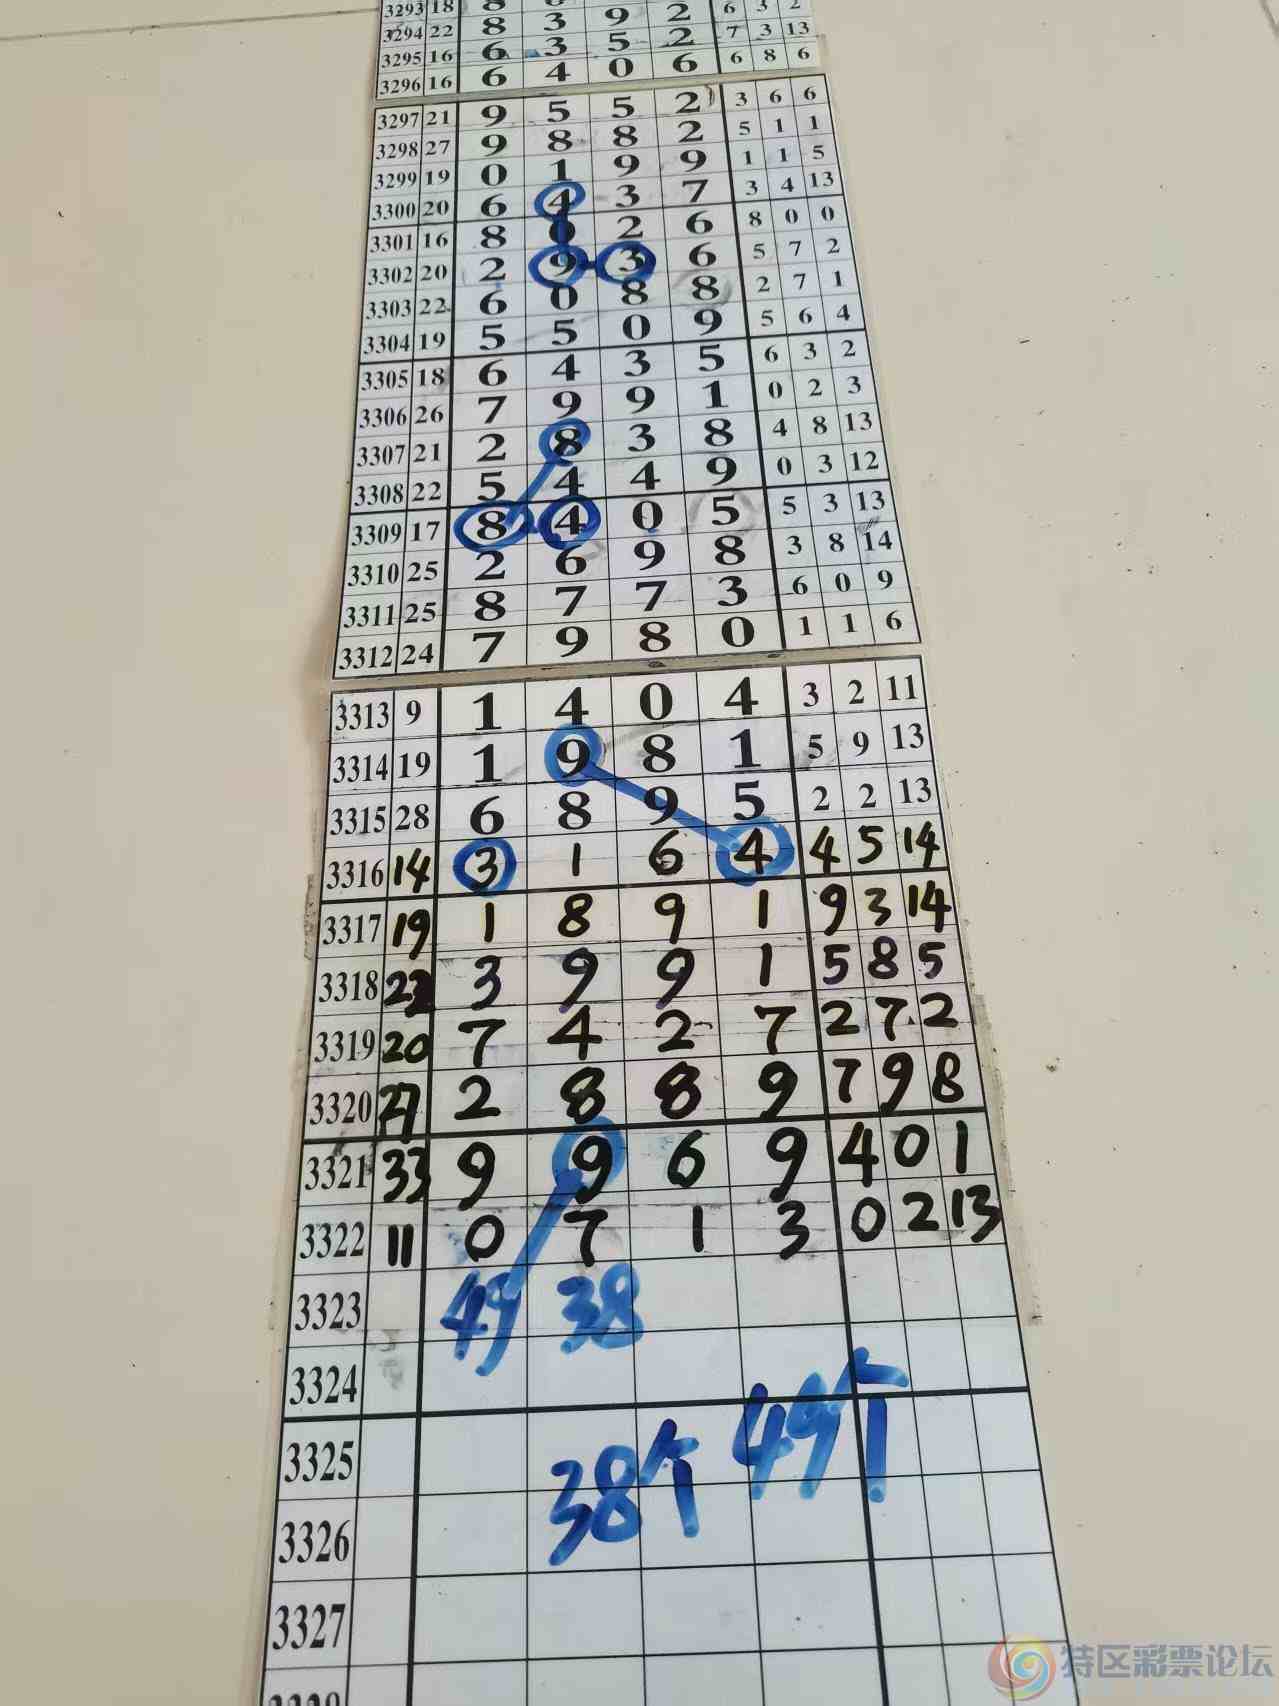 3293 18 8
3294 22 8 3 9 2 6 3 2
3295 16 6 3 5 2 7 3 13
3296 16 6 4 0 6 6 8 6
3297 21 9 5 5 2 3 6 6
3298 27 9 8 8 2 5 1 1
3299 19 0 1 9 9 1 1 5
3300 20 6 4 3 7 3 4 13
3301 16 8 0 2 6 8 0 0
3302 20 2 9 3 6 5 7 2
3303 22 6 0 8 8 2 7 1
3304 19 5 5 0 9 5 6 4
3305 18 6 4 3 5 6 3 2
3306 26 7 9 9 1 0 2 3
3307 21 2 8 3 8 4 8 13
3308 22 5 4 4 9 0 3 12
3309 17 8 4 0 5 5 3 13
3310 25 2 6 9 8 3 8 14
3311 25 8 7 7 3 6 0 9
3312 24 7 9 8 0 1 1 6
3313 9 1 4 0 4 3 2 11
3314 19 1 9 8 1 5 9 13
3315 28 6 8 9 5 2 2 13
3316 14 3 1 6 4 4 5 14
3317 19 1 8 9 1 9 3 14
3318 22 3 9 9 1 5 8 5
3319 20 7 4 2 7 2 7 2
3320 27 2 8 8 9 7 9 8
3321 33 9 9 6 9 4 0 1
3322 11 0 7 1 3 0 2 13
3323 49 38
3324
3325 38个 49个
3326
3327
特区彩票论坛